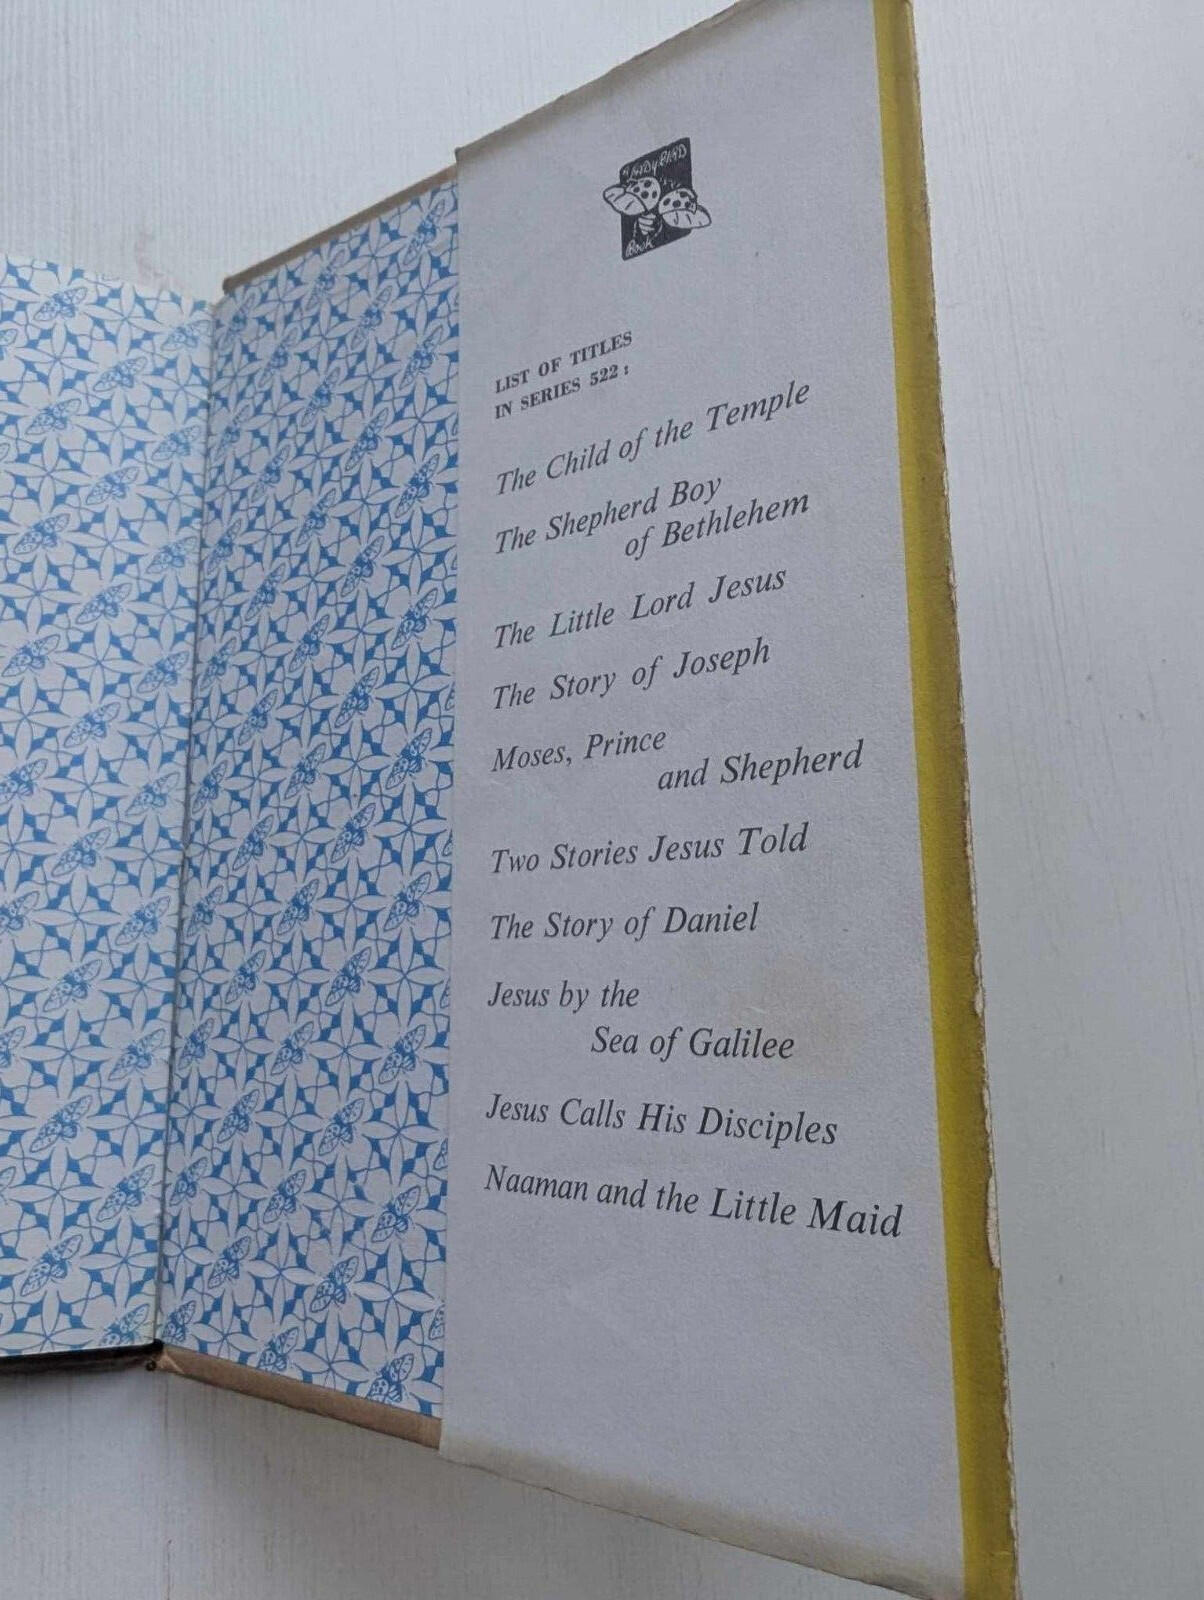 LADYBIRD
Book
LIST OF TITLES
IN SERIES 522 :
The Child of the Temple
The Shepherd Boy
of Bethlehem
The Little Lord Jesus
The Story of Joseph
Moses, Prince
and Shepherd
Two Stories Jesus Told
The Story of Daniel
Jesus by the
Sea of Galilee
Jesus Calls His Disciples
Naaman and the Little Maid